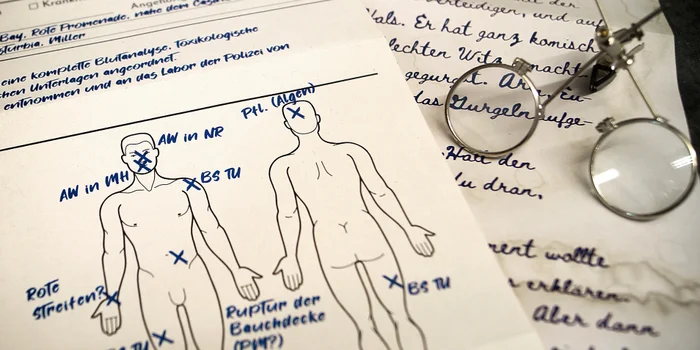 Kranken
Angehö
Bay, Rote Promenade, nahe dem Casino
sturbia, Miller
eine komplette Blutanalyse, Toxikologische
hen Unterlagen angeordnet.
entnommen und an das Labor der Polizei von
AW in NR
AW in MH
BS TU
Rote
Streifen?
Ruptur der
Bauchdecke
(PM?)
TU
Pfl. (Algen)
BS TU
verteidigen, und auf
Hals. Er hat ganz komisch
lechten Witz macht
gegurgt.
das Gurgeln aufge-
Halt den
du dran.
ment wollte
erklären.
Aber dann